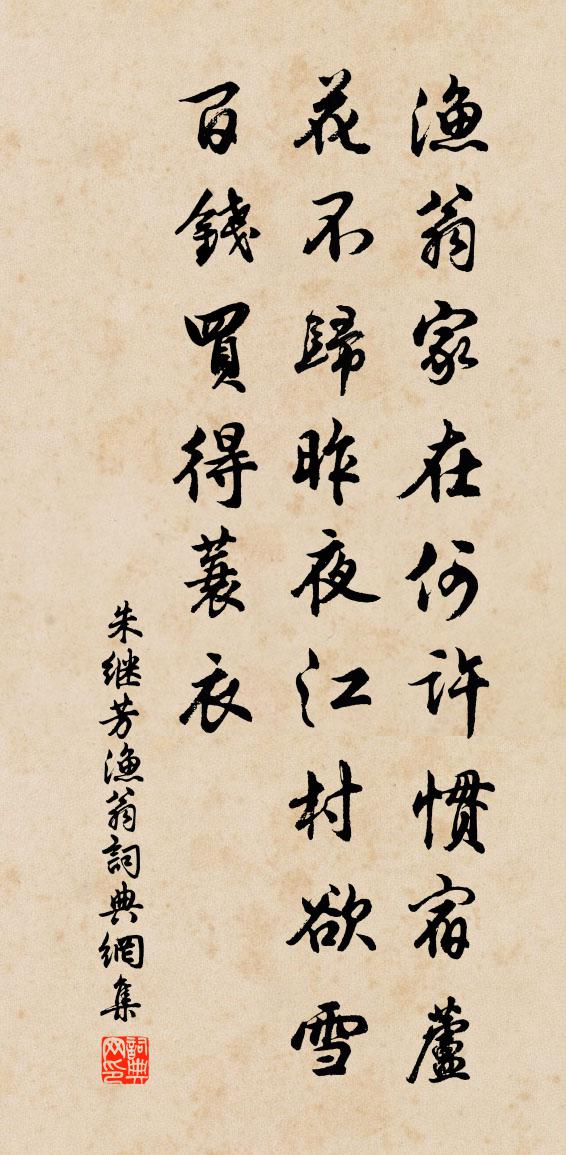 漁翁家在何許慣宿蘆
花不歸昨夜江村欲雪
百錢買得蓑衣
朱继芳漁翁詞典網集
詞典网印